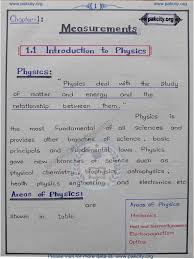 www.pakcity.org
1
www.pakcity.org
pakcity.org
Chapter-1:
Measurements
1.1 Introduction to Physics
Physics:
"Physics deal with the study
of matter and energy and the
relationship between them."
Physics is
the most fundamental of all sciences and
provides other branches of science, basic
principals and fundamental laws. Physics
gave new branches of science such as
physical chemistry, astrophysics,
health physics engineering and electronics etc
Areas of Physics:
Areas of Physics are
shown in table.
Areas of Physics
Mechanics
Heat and thermodynamics
Electromagnetism
Optics
Please visit for more data at: www.pakcity.org